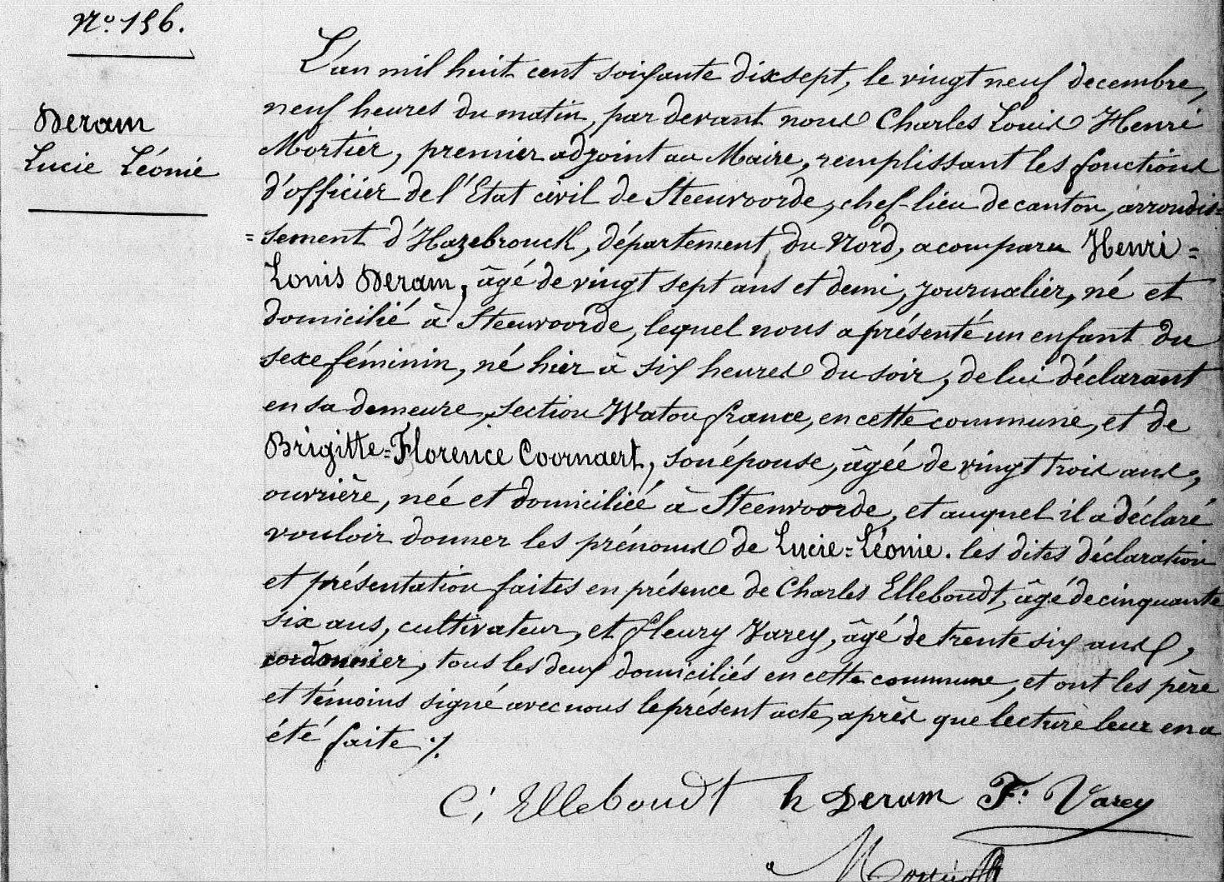 Nº 156.
Deram
Lucie Léonie
L'an mil huit cent soixante dixsept, le vingt neuf decembre,
neuf heures du matin, par devant nous Charles Louis Henri
Mortier, premier adjoint au Maire, remplissant les fonctions
d'officier de l'Etat civil de Steenvoorde, chef-lieu de canton, arrondis=
=sement d'Hazebrouck, département du Nord, a comparu Henri=
Louis Deram, âgé de vingt sept ans et demi, journalier, né et
domicilié à Steenvoorde, lequel nous a présenté un enfant du
sexe féminin, né hier à six heures du soir, de lui déclarant
en sa demeure, section Watou france, en cette commune, et de
Brigitte=Florence Coornaert, son épouse, âgée de vingt trois ans,
ouvrière, née et domiciliée à Steenvoorde, et auquel il a déclaré
vouloir donner les prénoms de Lucie=Léonie. les dites déclaration
et présentation faites en présence de Charles Elleboudt, âgé de cinquante
six ans, cultivateur, et fleury Varey, âgé de trente six ans,
cordonnier, tous les deux domiciliés en cette commune, et ont les père
et témoins signé avec nous le présent acte, après que lecture leur en a
été faite ./.
C; Elleboudt h Deram F. Varey
Mortier